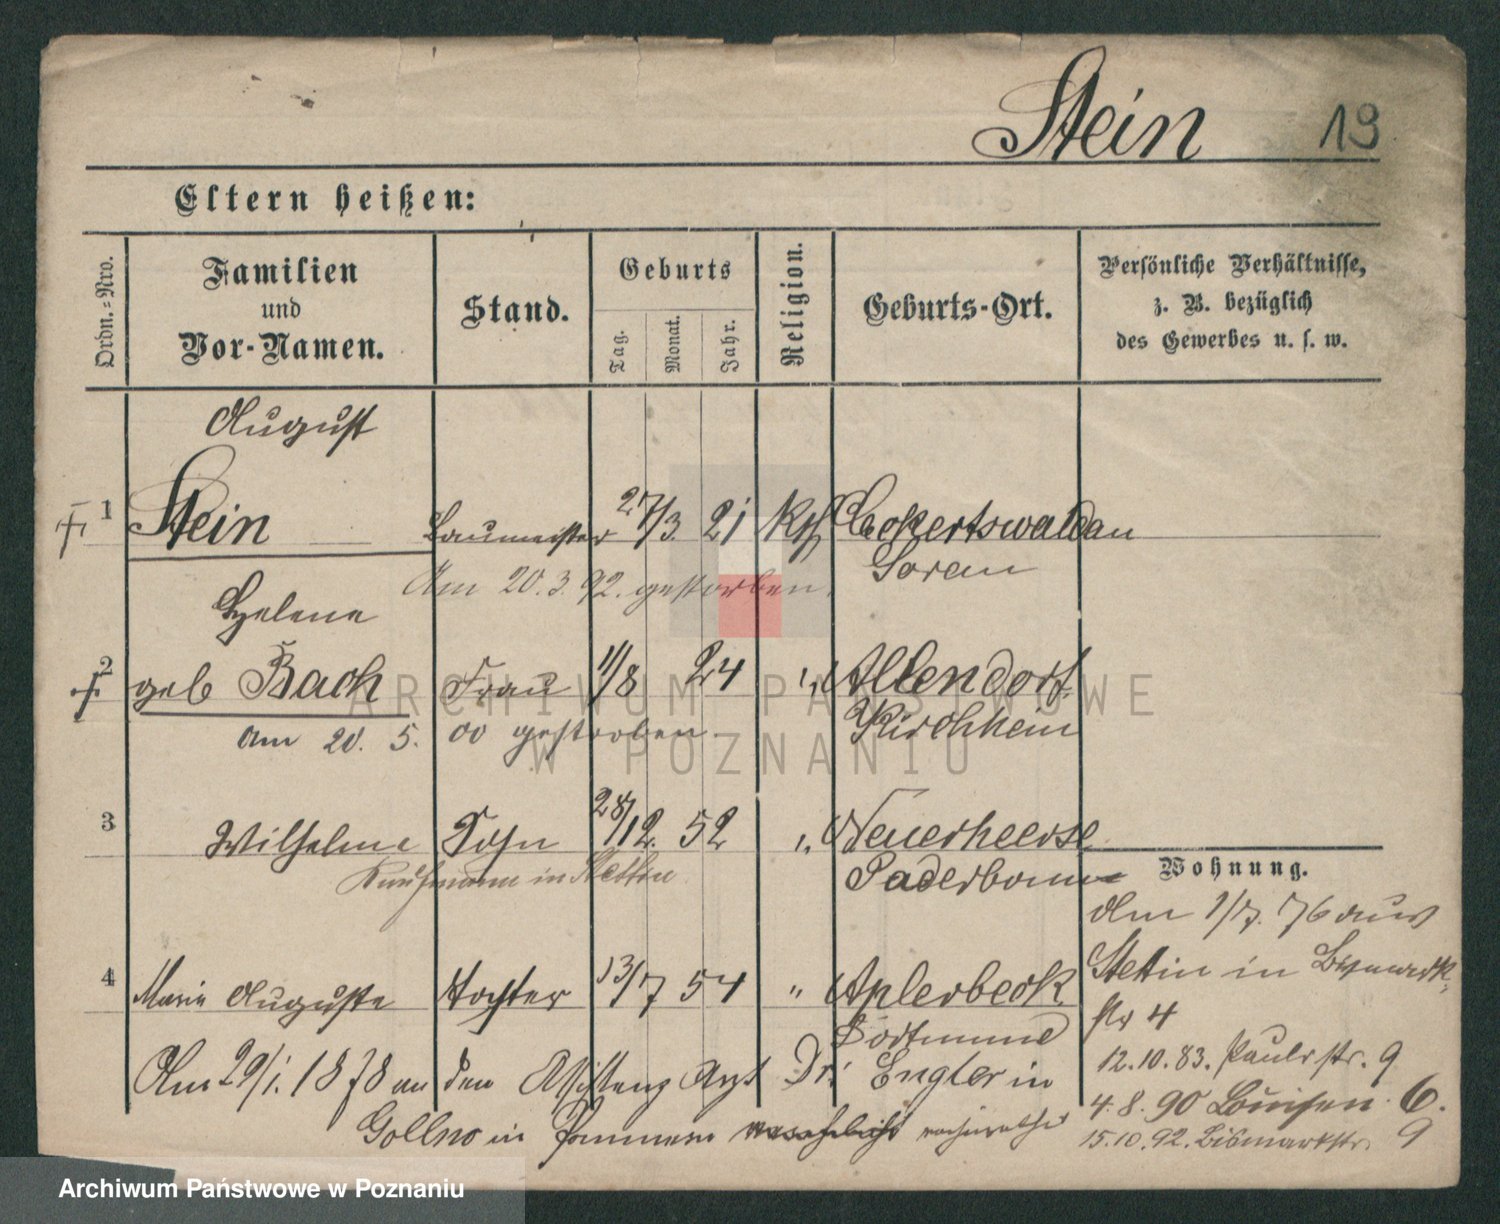 Stein 19
Eltern heißen:
Ordn.-Nro.
Familien
und
Vor-Namen.
Stand.
Geburts
Tag. Monat. Jahr.
Religion.
Geburts-Ort.
Persönliche Verhältnisse,
z. B. bezüglich
des Gewerbes u. s. w.
August
1 Stein Baumeister 27/3. 21 Eckertswaldau
Soran
Am 20. 3. 92. gestorben.
Helene
2 geb Bach Frau 11/8 24 " Allendorf
Kirchhein
am 20. 5. 00 gestorben.
3 Wilhelm Sohn 28/12. 52 " Neuerheerse
Kaufmann in Stettin Paderborn
4 Marie Auguste Tochter 13/7 54 " Aplerbeck
Dortmund
Am 29/1. 1878 an den Assistenz Arzt Dr. Engler in
Gollno in Pommern verheirathet
Wohnung.
Am 1/7. 76 aus
Stettin in Bismarck-
str 4
12.10.83. Paulistr. 9
4. 8. 90 Louisen 6.
15.10.92. Bismarkstr. 9
ARCHIWUM PAŃSTWOWE
W POZNANIU
Archiwum Państwowe w Poznaniu